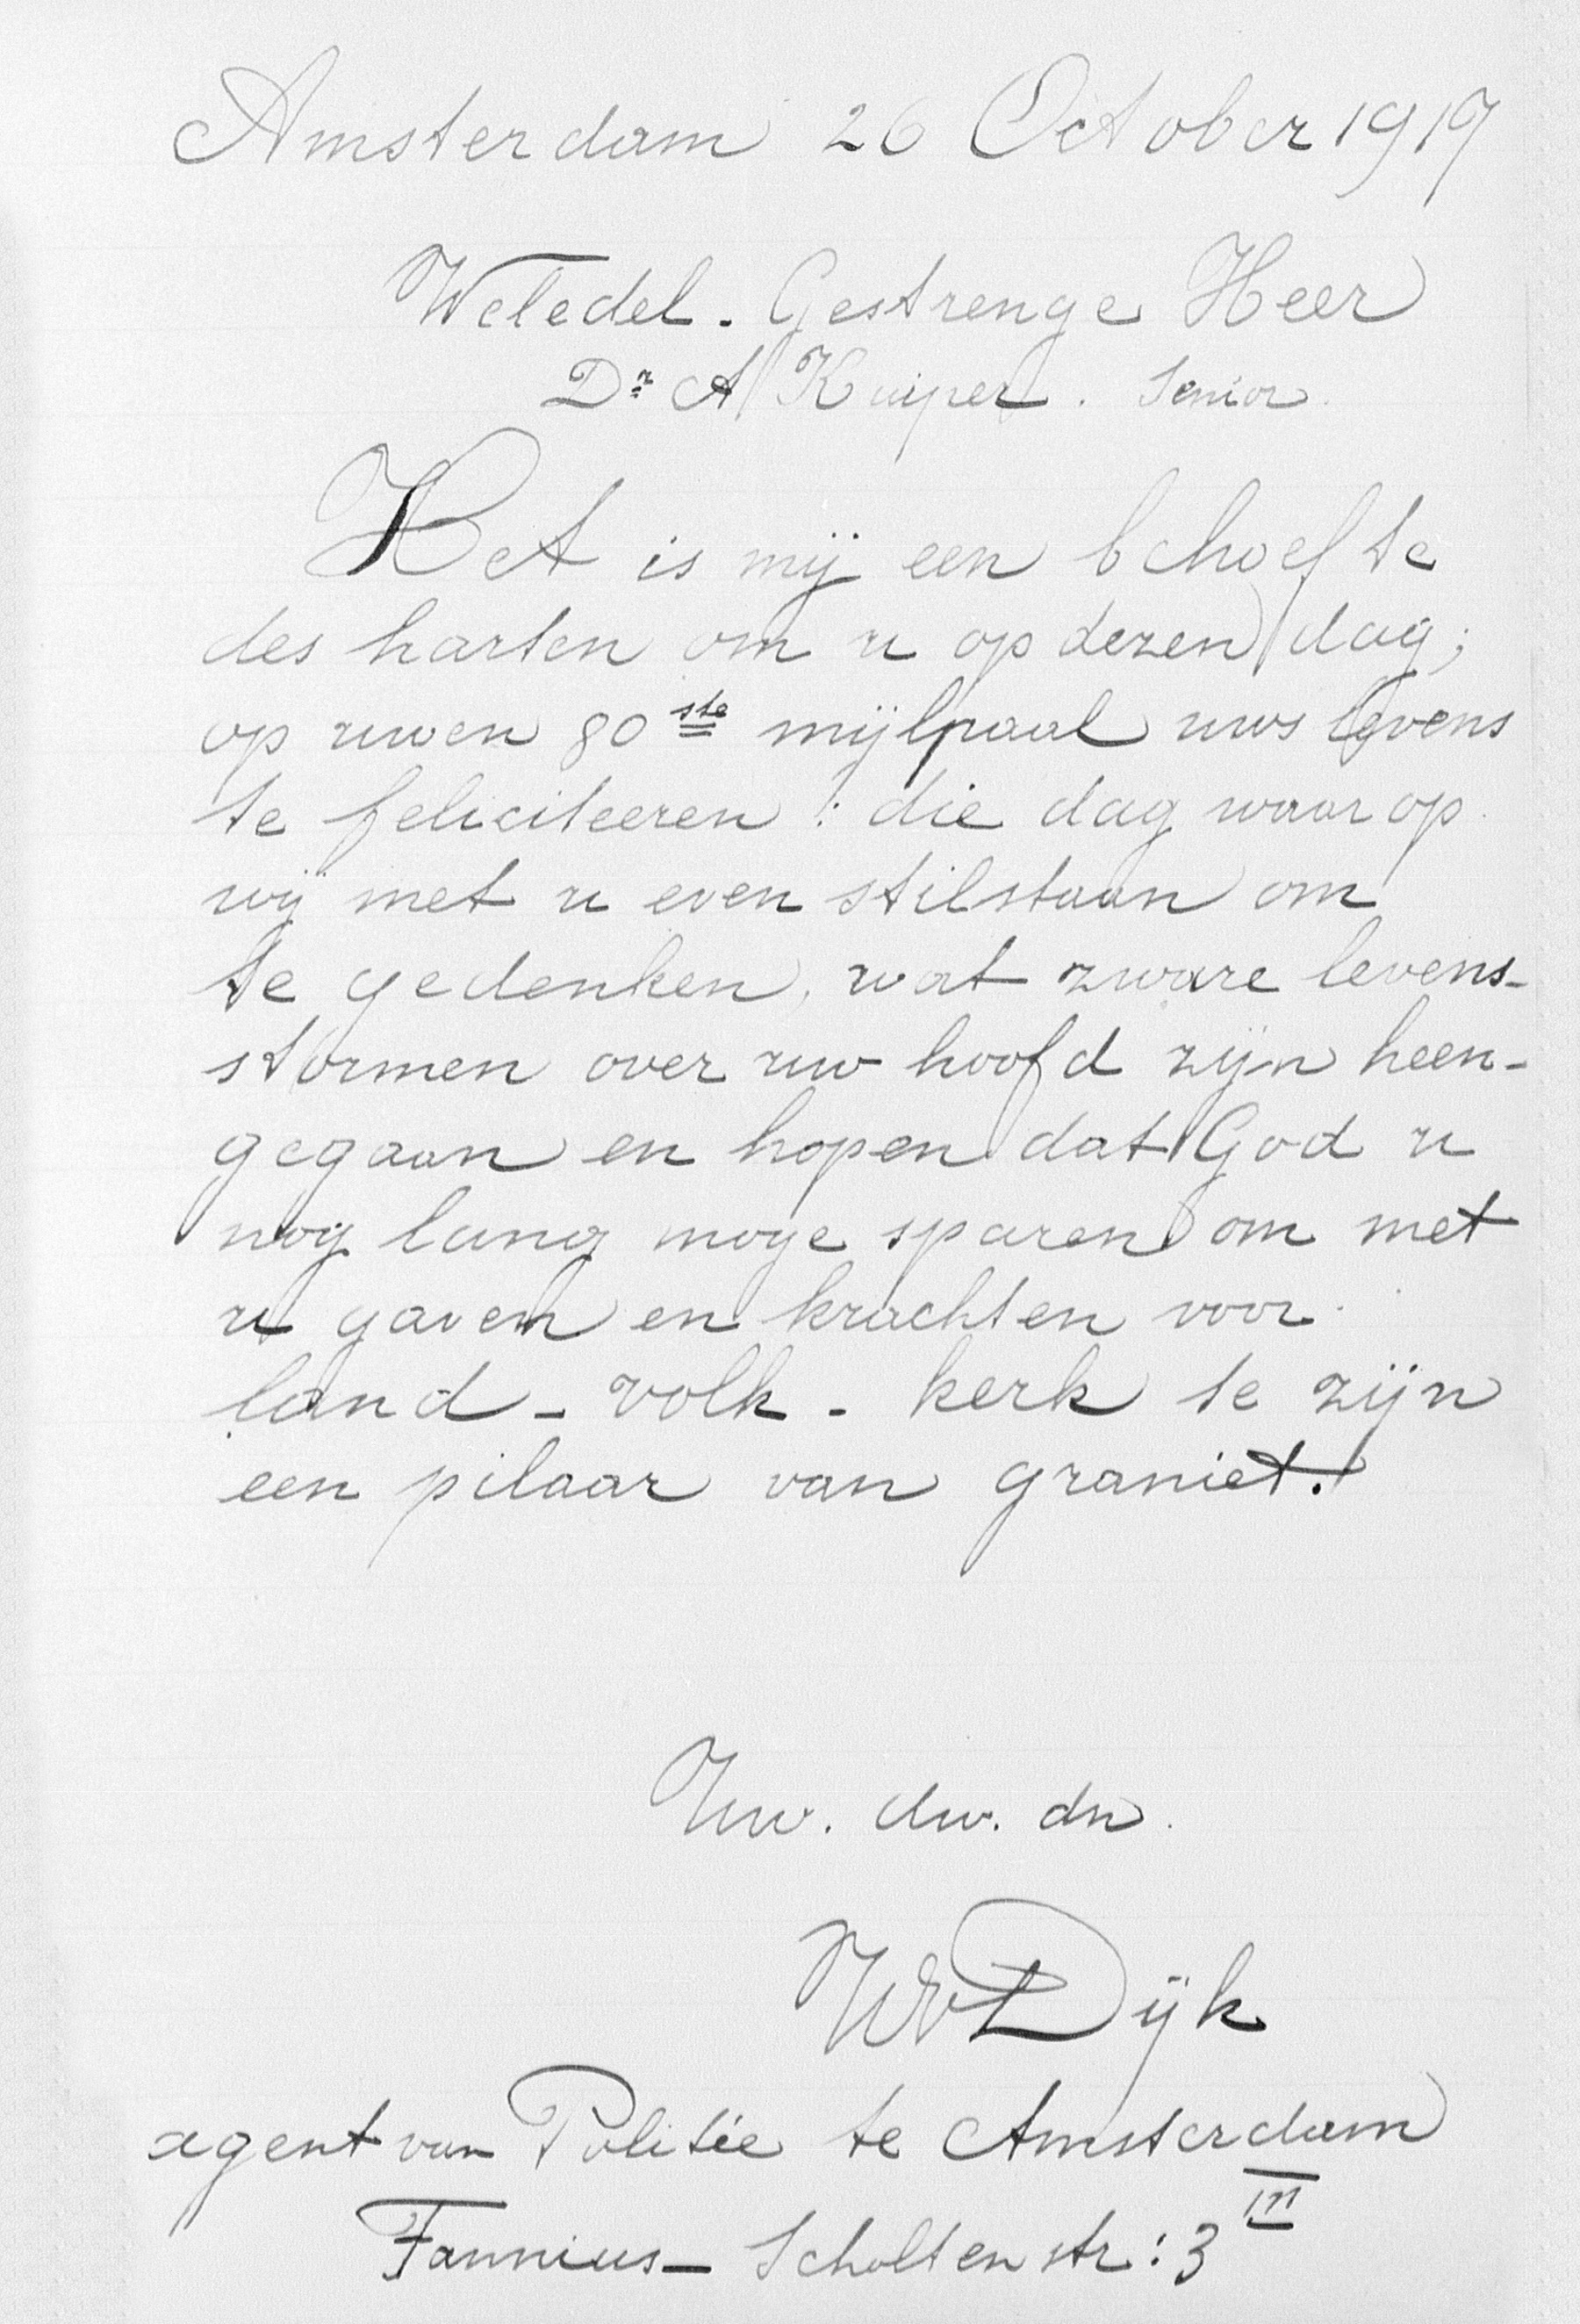 Amsterdam 26 October 1917
Weledel. Gestrenge Heer
Dr A Kuiper. Senior.
Het is mij een behoefte
des harten om u op dezen dag;
op uwen 80ste mijlpaal uws levens
te feliciteeren! die dag waarop
wij met u even stilstaan om
te gedenken, wat zware levens-
stormen over uw hoofd zijn heen-
gegaan en hopen dat God u
nog lang moge sparen om met
u gaven en krachten voor
land - volk - kerk te zijn
een pilaar van graniet!
Uw. dw. dn.
WvDijk
agent van Politie te Amsterdam
Fannius- Scholtenstr: 3 III